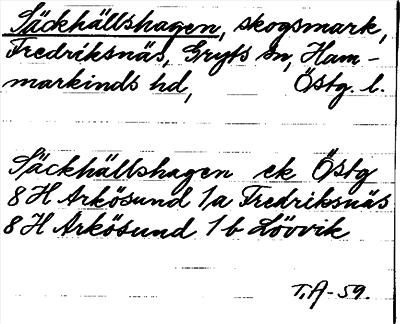 Säckhällshagen, skogsmark,
Fredriksnäs, Gryts sn, Ham-
markinds hd, Östg. l.
Säckhällshagen ek Östg
8 H Arkösund 1a Fredriksnäs
8 H Arkösund 1 b Lövvik
T.A-59.